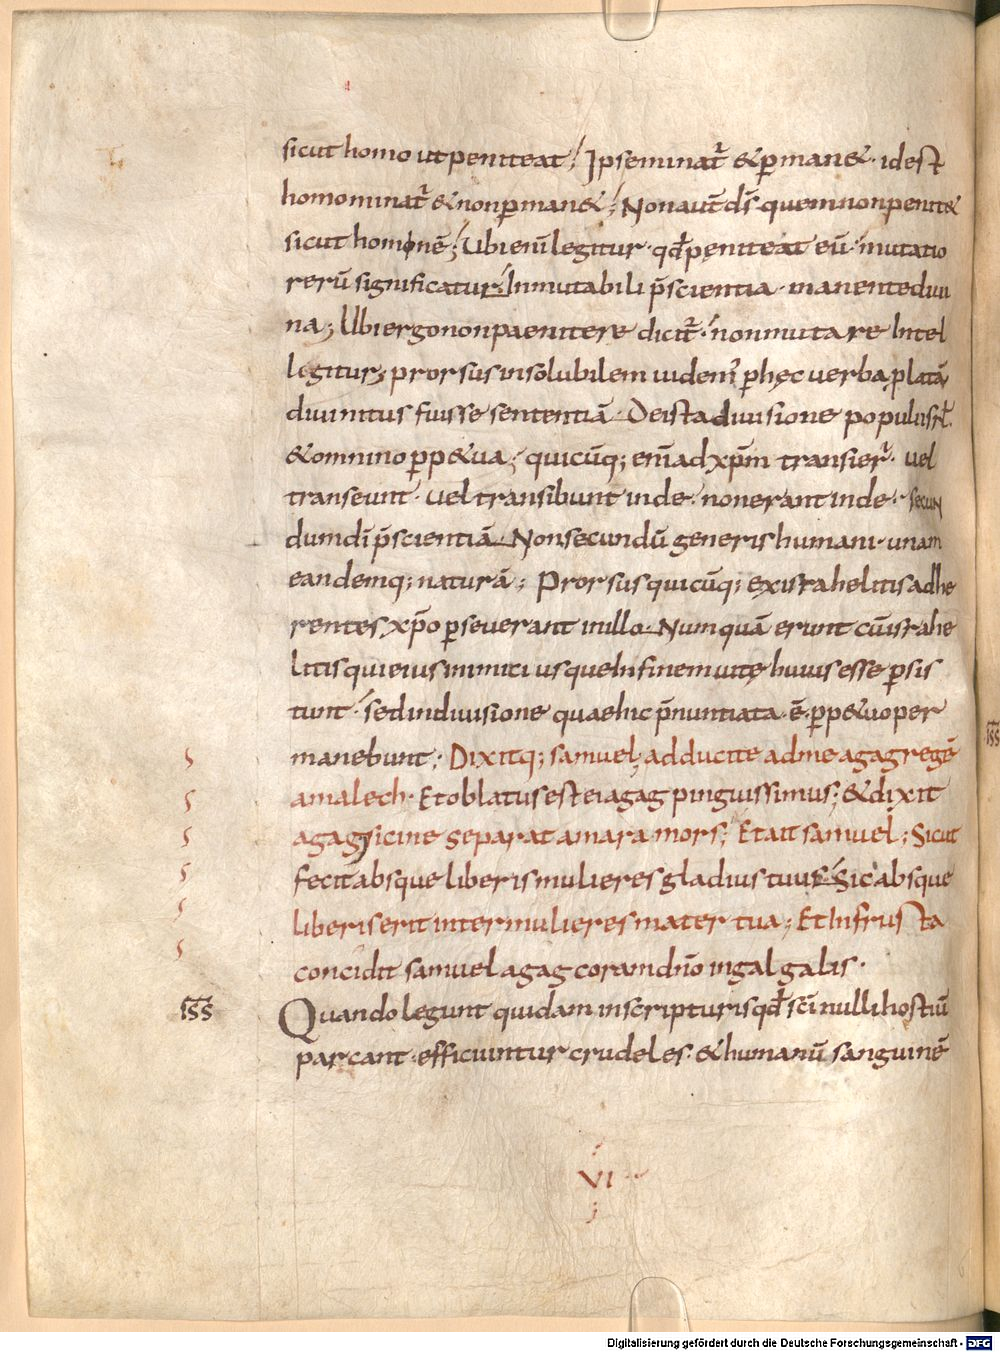 sicut homo ut peniteat; Ipse minat̄ & p̄man&· idest
homo minat̄ & non p̄man&; Non aut̄ ds̄ quem non penit&
sicut hominē; Ubi enī legitur· qd̄ peniteat eū· mutatio
rerū significatur Inmutabili p̄scientia· manente diui
na; Ubi ergo non paenitere dicit̄· non mutare Intel
legitur; prorsus insolubilem uidem̄ p̄ hęc uerba p̄latā
diuinitus fuisse sententiā De ista diuisione populi isrl̄
& omnino p̄p&ua; quicūq; enī ad xp̄m transier̄· uel
transeunt· uel transibunt inde· non erant inde· secun
dum dī p̄scientiā Non secundū generis humani· unam
eandemq; naturā; Prorsus quicūq; ex israhelitis adhe
rentes xp̄o p̄seuerant in illo· Numquā erunt cū israhe
litis qui eius inimici usque In finem uitę huius esse p̄sis
tunt· sed in diuisione quae hic p̄nuntiata· ē· p̄p&uo per
manebunt; Dixitq; samuel; adducite ad me agag regē
amalech· Et oblatus est ei agag pinguissimus; & dixit
agag; sicine separat amara mors; Et ait samuel; Sicut
fecit absque liberis mulieres gladius tuus Sic absque
liberis erit inter mulieres mater tua; Et In frusta
concidit samuel agag coram dn̄o in galgalis·
iss Quando legunt quidam in scripturis qd̄ scī nulli hostiū
parcant· efficiuntur crudeles· & humanū sanguinē
VI
Digitalisierung gefördert durch die Deutsche Forschungsgemeinschaft - DFG